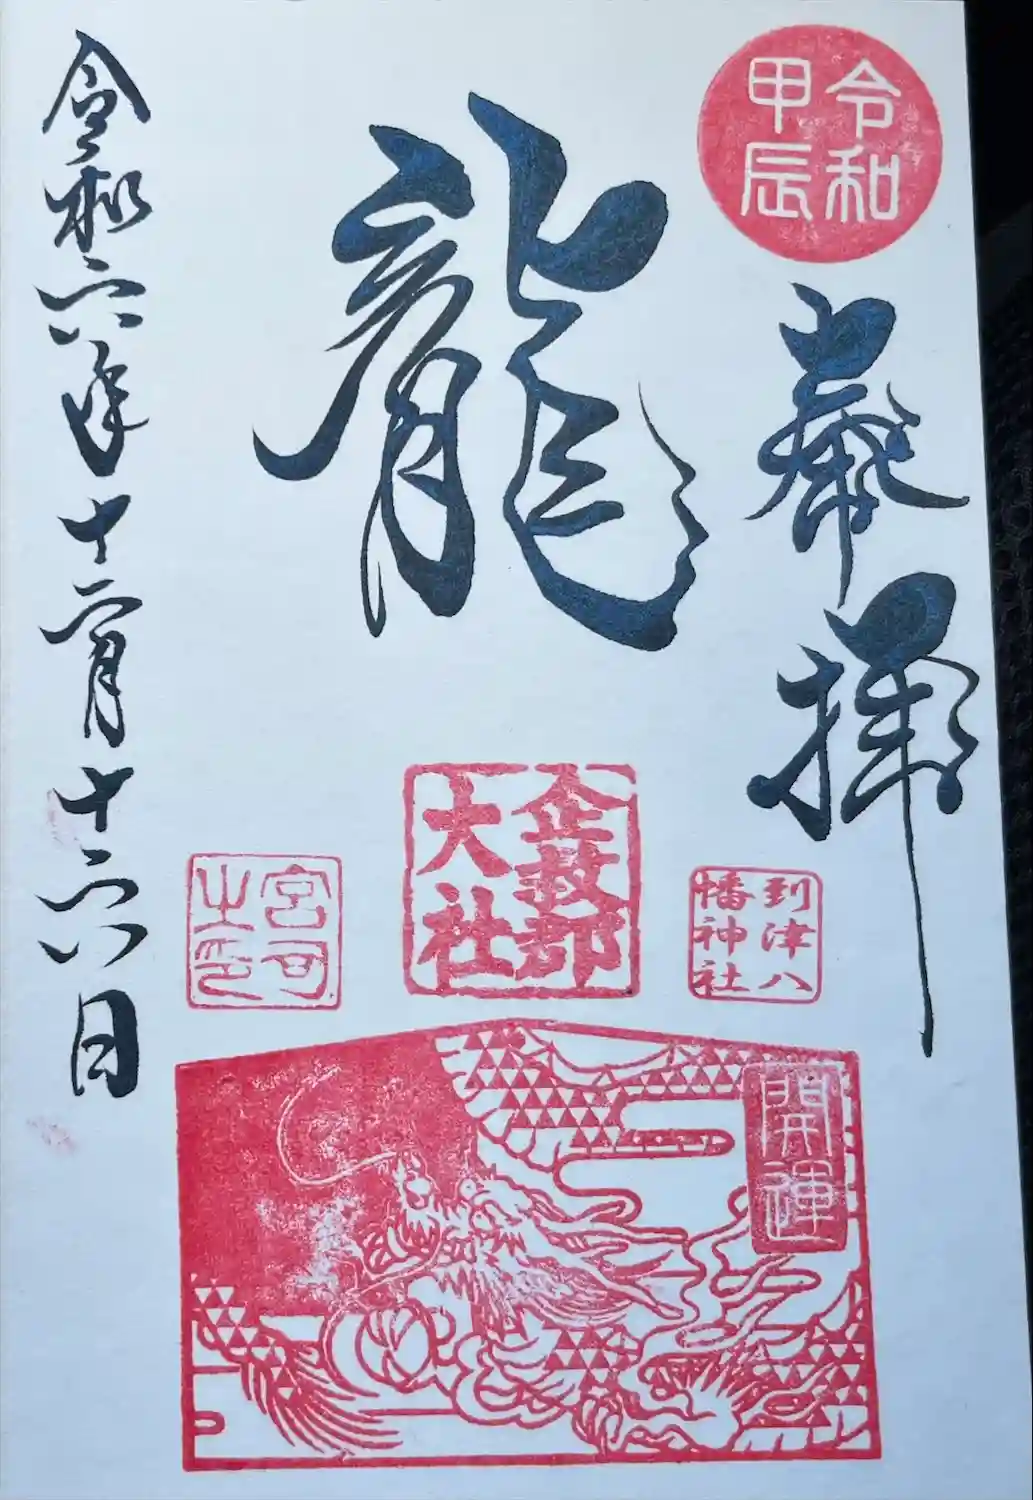 令和
甲辰
奉拝
龍
到津八
幡神社
企救郡
大社
宮司
之印
開運
令和六年十二月十六日